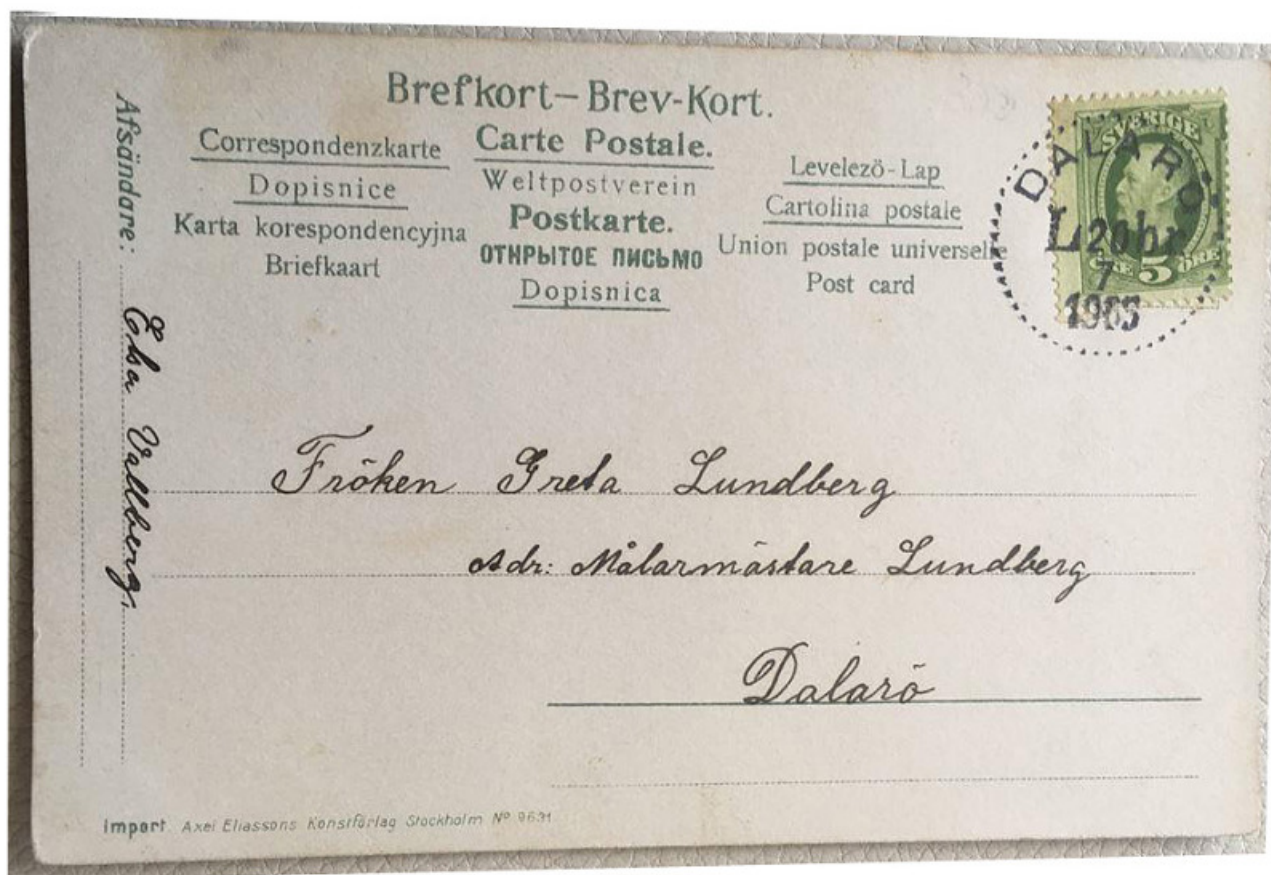 Brefkort–Brev-Kort.
Correspondenzkarte
Dopisnice
Karta korespondencyjna
Briefkaart
Carte Postale.
Weltpostverein
Postkarte.
ОТКРЫТОЕ ПИСЬМО
Dopisnica
Levelezö-Lap
Cartolina postale
Union postale universelle
Post card
SVERIGE
5 ÖRE
DALARÖ
20
7
Afsändare: Elsa Vallberg.
Fröken Greta Lundberg
Adr: Målarmästare Lundberg
Dalarö
Import. Axel Eliassons Konstförlag Stockholm Nº 9631